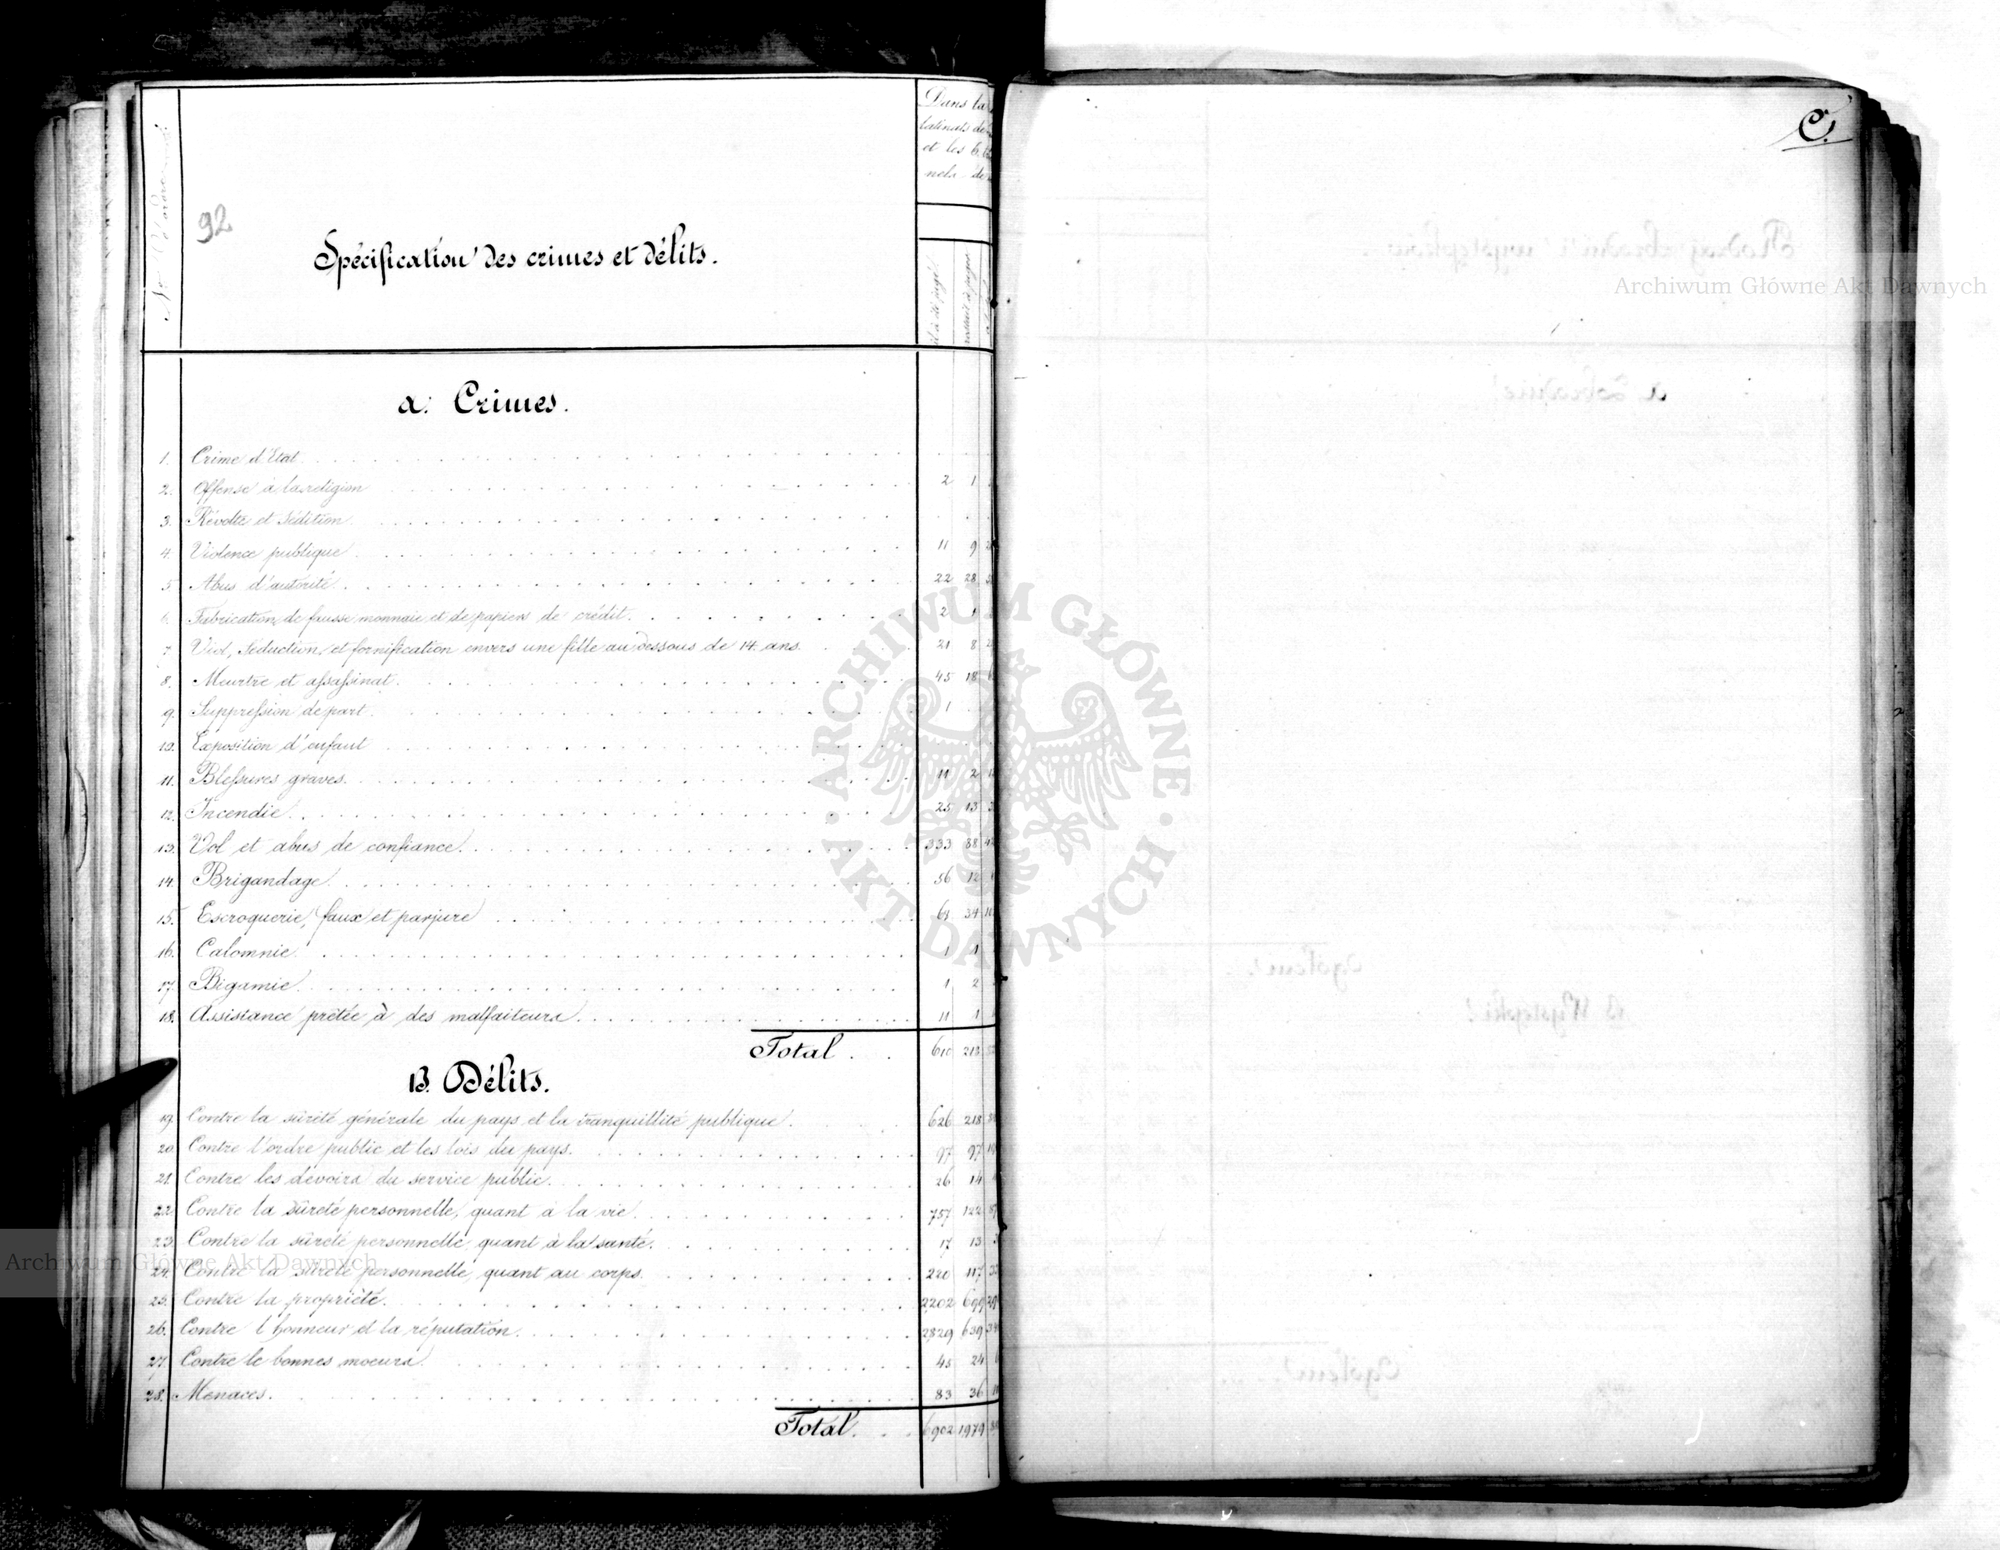 No. d'ordre
92
Spécification des crimes et délits.
Dans la
latinats de
et les 6
nels de
C.
a. Crimes.
1. Crime d'Etat
2. Offense à la religion 2 1
3. Révolte et sédition
4. Violence publique 11 9
5. Abus d'autorité 22 28
6. Fabrication de fausse monnaie et de papiers de crédit. 2 1
7. Viol, séduction, et fornification envers une fille au dessous de 14 ans. 21 8
8. Meurtre et assassinat. 45 18
9. Suppression de part. 1
10. Exposition d'enfant
11. Blessures graves. 11 2
12. Incendie. 25 13
13. Vol et abus de confiance. 333 88
14. Brigandage. 56 12
15. Escroquerie, faux et parjure 34
16. Calomnie. 1 1
17. Bigamie. 1 2
18. Assistance prêtée à des malfaiteurs. 11 1
Total. 610 218
B. Délits.
19. Contre la sûreté générale du pays et la tranquillité publique. 626 218
20. Contre l'ordre public et les lois du pays. 97 97
21. Contre les devoirs du service public. 26 14
22. Contre la sûreté personnelle, quant à la vie. 757 122
23. Contre la sûreté personnelle, quant à la santé. 17 13
24. Contre la sûreté personnelle, quant au corps. 220 117
25. Contre la propriété. 2202 699
26. Contre l'honneur et la réputation. 2829 639
27. Contre le bonnes moeurs. 45 24
28. Menaces. 83 36
Total. 6902 1979
Archiwum Główne Akt Dawnych
Archiwum Główne Akt Dawnych
ARCHIWUM GŁÓWNE AKT DAWNYCH